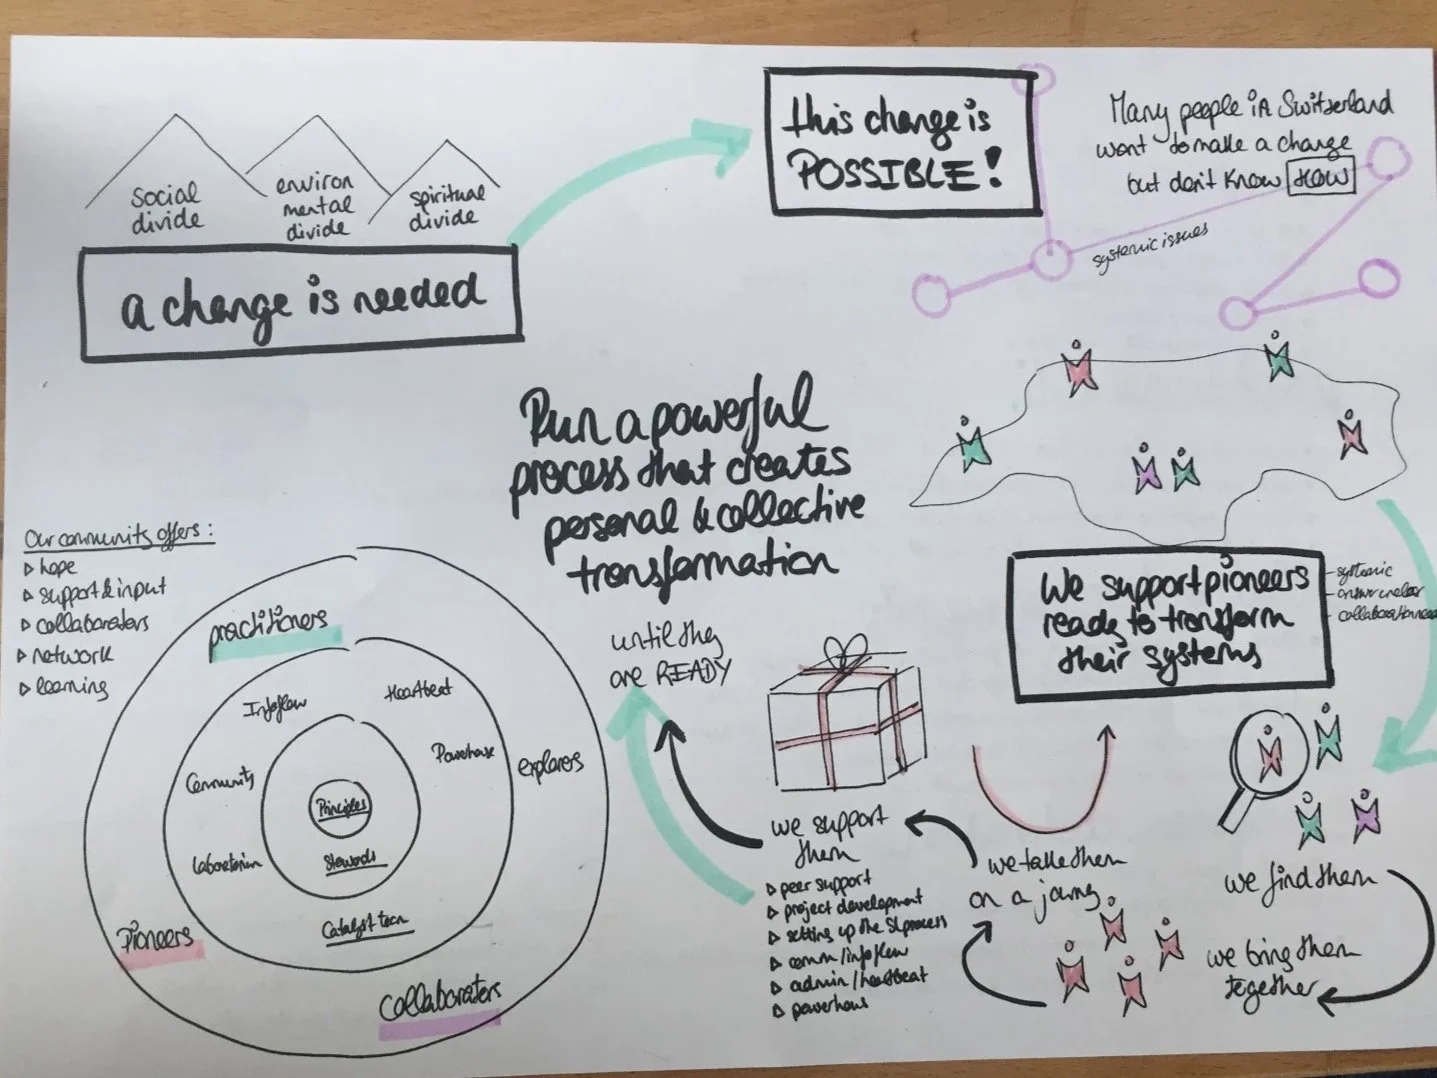 social
divide
environ
mental
divide
spiritual
divide
a change is needed
this change is
POSSIBLE!
Many people in Switzerland
want to make a change
but don't know HOW
systemic issues
Run a powerful
process that creates
personal & collective
transformation
until they
are READY
We support pioneers
ready to transform
their systems
- systemic
- collaboration
we find them
we bring them
together
we take them
on a journey
we support
them
▷ peer support
▷ project development
▷ setting up the SI process
▷ comm/infoflow
▷ admin/heartbeat
▷ powerhouse
Our community offers:
▷ hope
▷ support & input
▷ collaborators
▷ network
▷ learning
practitioners
Infoflow
Heartbeat
Community
Powerhouse
explorers
Principles
Laboratorium
Stewards
Catalyst team
Pioneers
collaborators